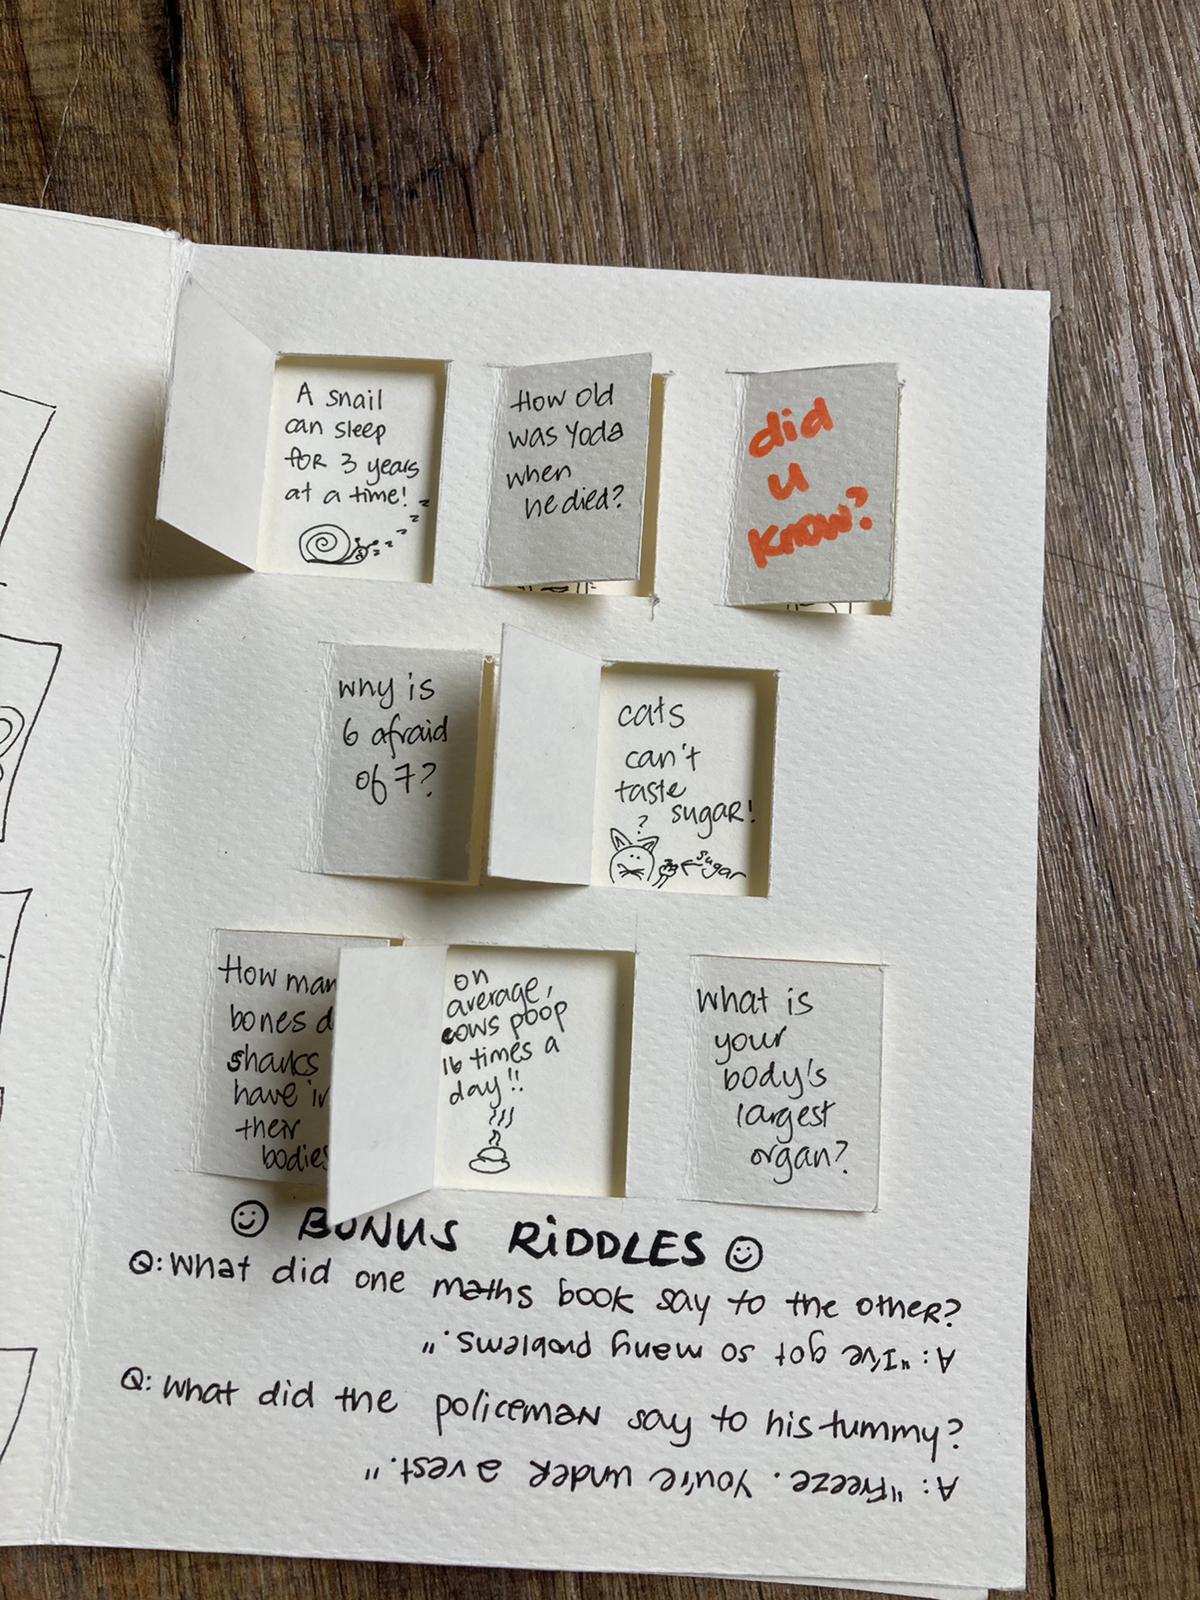 A snail
can sleep
for 3 years
at a time!
z z z z z z
How old
was Yoda
when
he died?
did
u
know?
why is
6 afraid
of 7?
cats
can't
taste
sugar!
?
sugar
How man
bones d
sharks
have in
their
bodies
on
average,
cows poop
16 times a
day!!
what is
your
body's
largest
organ?
BONUS RiDDLES
Q: What did one maths book say to the other?
A: "I've got so many problems."
Q: What did the policeman say to his tummy?
A: "Freeze. You're under a vest."